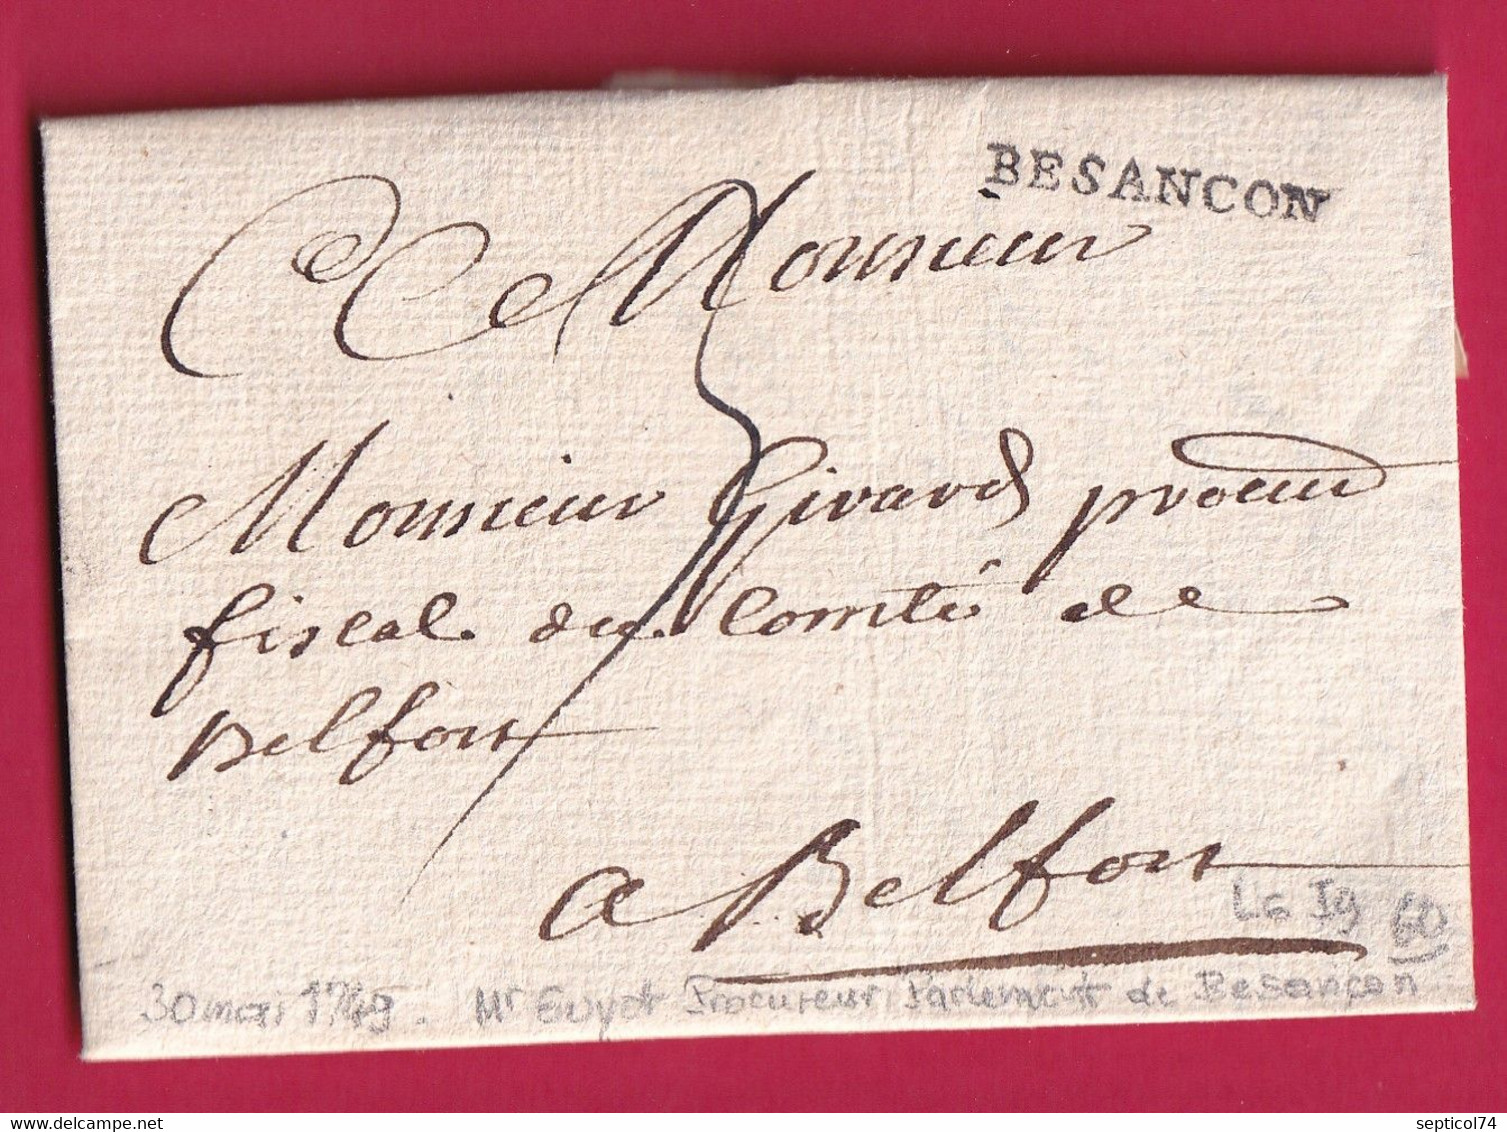 BESANCON
A Monsieur
Monsieur Girard procureur
fiscal du Comté de
Belfort
a Belfort
L6 Ig 60
30 mai 1749. Mr Guyot Procureur Parlement de Besançon
delcampe.net
septicol74